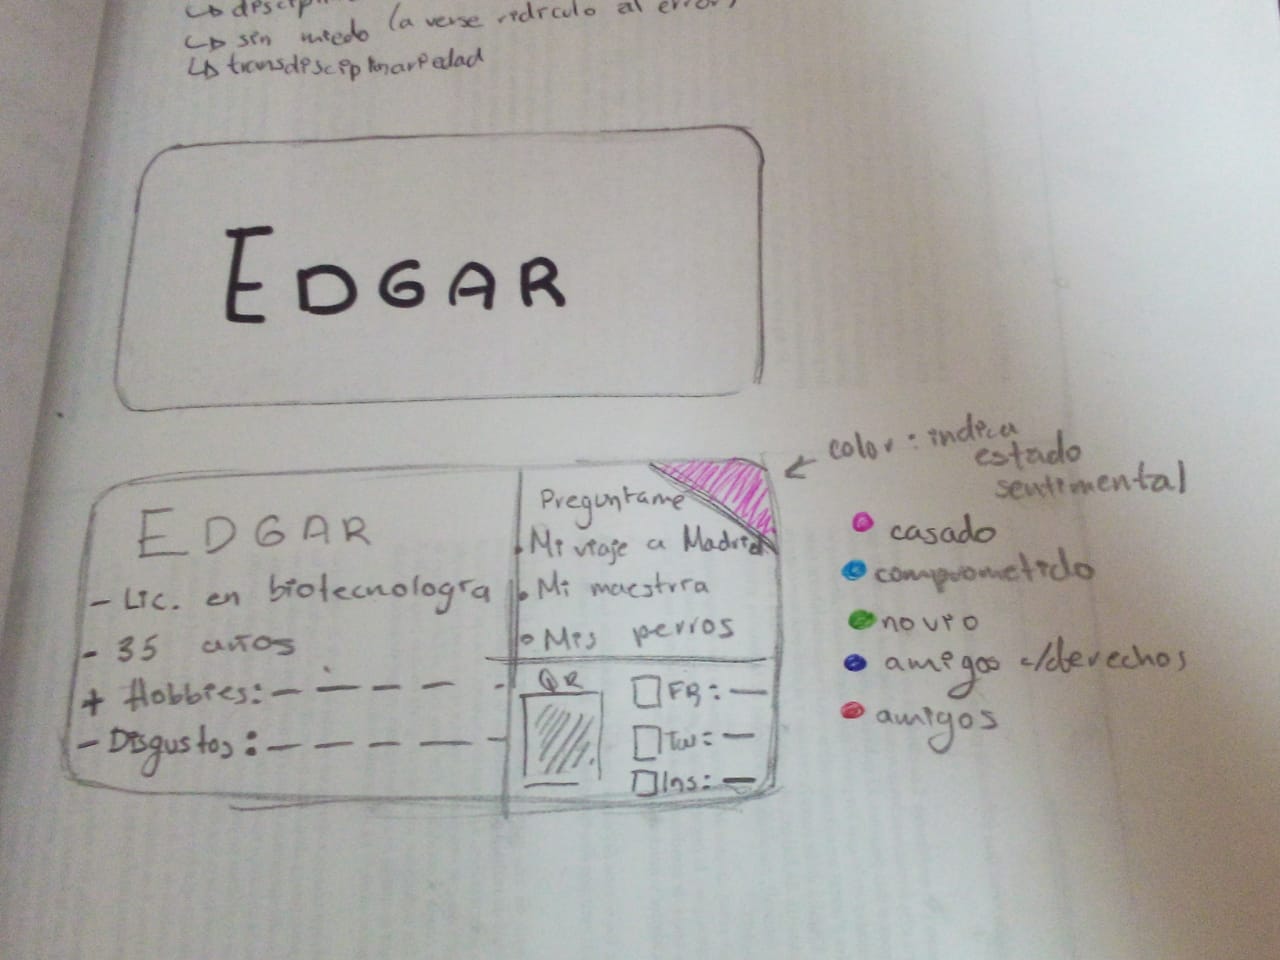 ↳ sin miedo (a verse ridículo al error)
↳ transdisciplinariedad
EDGAR
EDGAR
- Lic. en biotecnología
- 35 años
+ Hobbies: - - - - -
- Disgustos: - - - - - -
Preguntame
• Mi viaje a Madrid
• Mi maestría
• Mis perros
QR
FB: —
Tw: —
Ins: —
color: indica
estado
sentimental
casado
comprometido
novio
amigos c/derechos
amigos